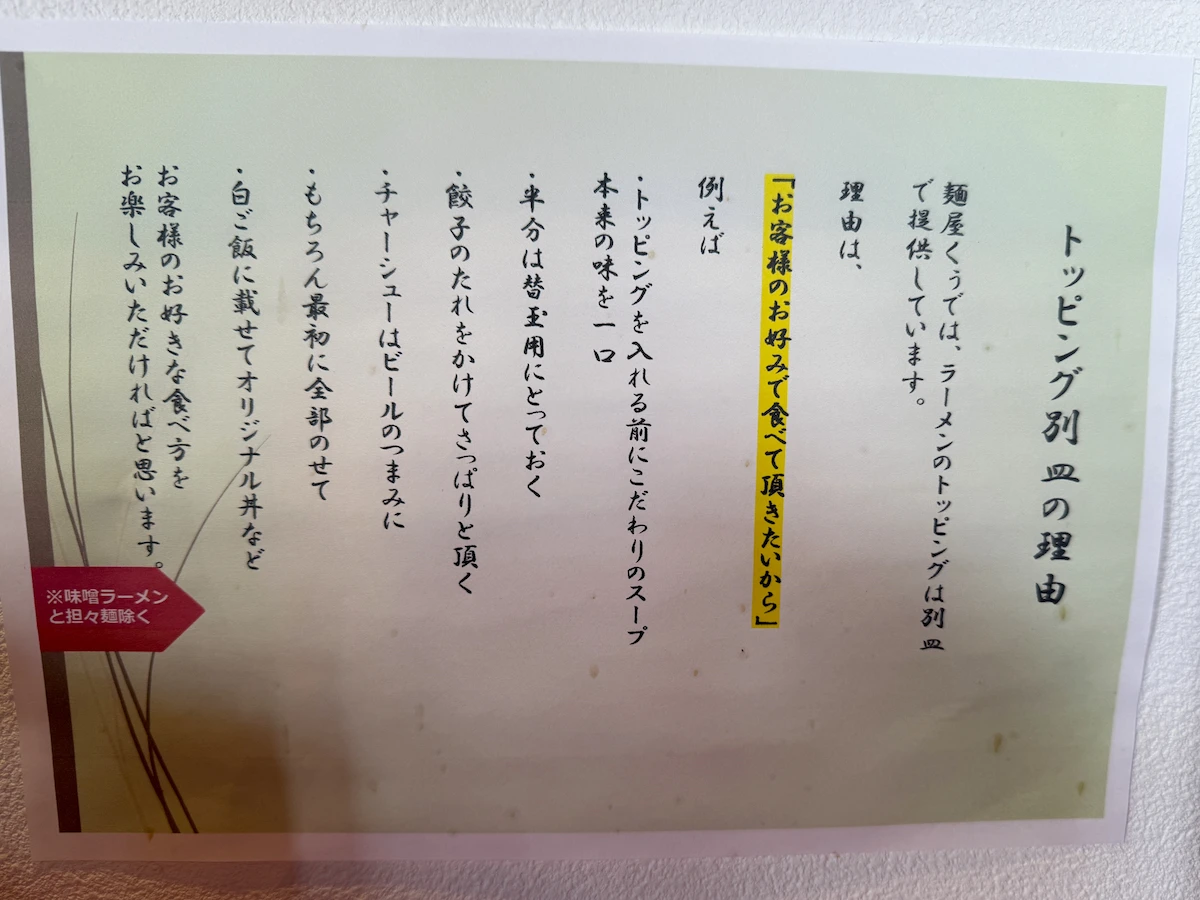 トッピング別皿の理由
麺屋くうでは、ラーメンのトッピングは別皿
で提供しています。
理由は、
「お客様のお好みで食べて頂きたいから」
例えば
・トッピングを入れる前にこだわりのスープ
本来の味を一口
・半分は替玉用にとっておく
・餃子のたれをかけてさっぱりと頂く
・チャーシューはビールのつまみに
・もちろん最初に全部のせて
・白ご飯に載せてオリジナル丼など
お客様のお好きな食べ方を
お楽しみいただければと思います。
※味噌ラーメン
と担々麺除く